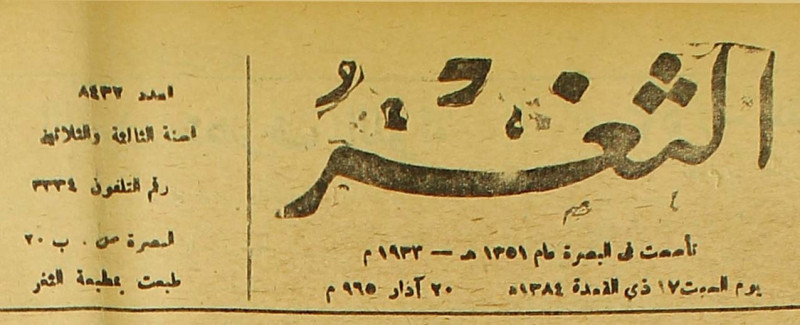 الثغر
تأسست في البصرة عام ١٣٥١ هـ — ١٩٣٣ م
يوم السبت ١٧ ذي القعدة ١٣٨٤هـ ٢٠ آذار ٩٦٥ م
العدد ٨٤٣٢
السنة الثالثة والثلاثين
رقم التلفون ٣٣٣٤
البصرة ص . ب ٢٠
طبعت بمطبعة الثغر